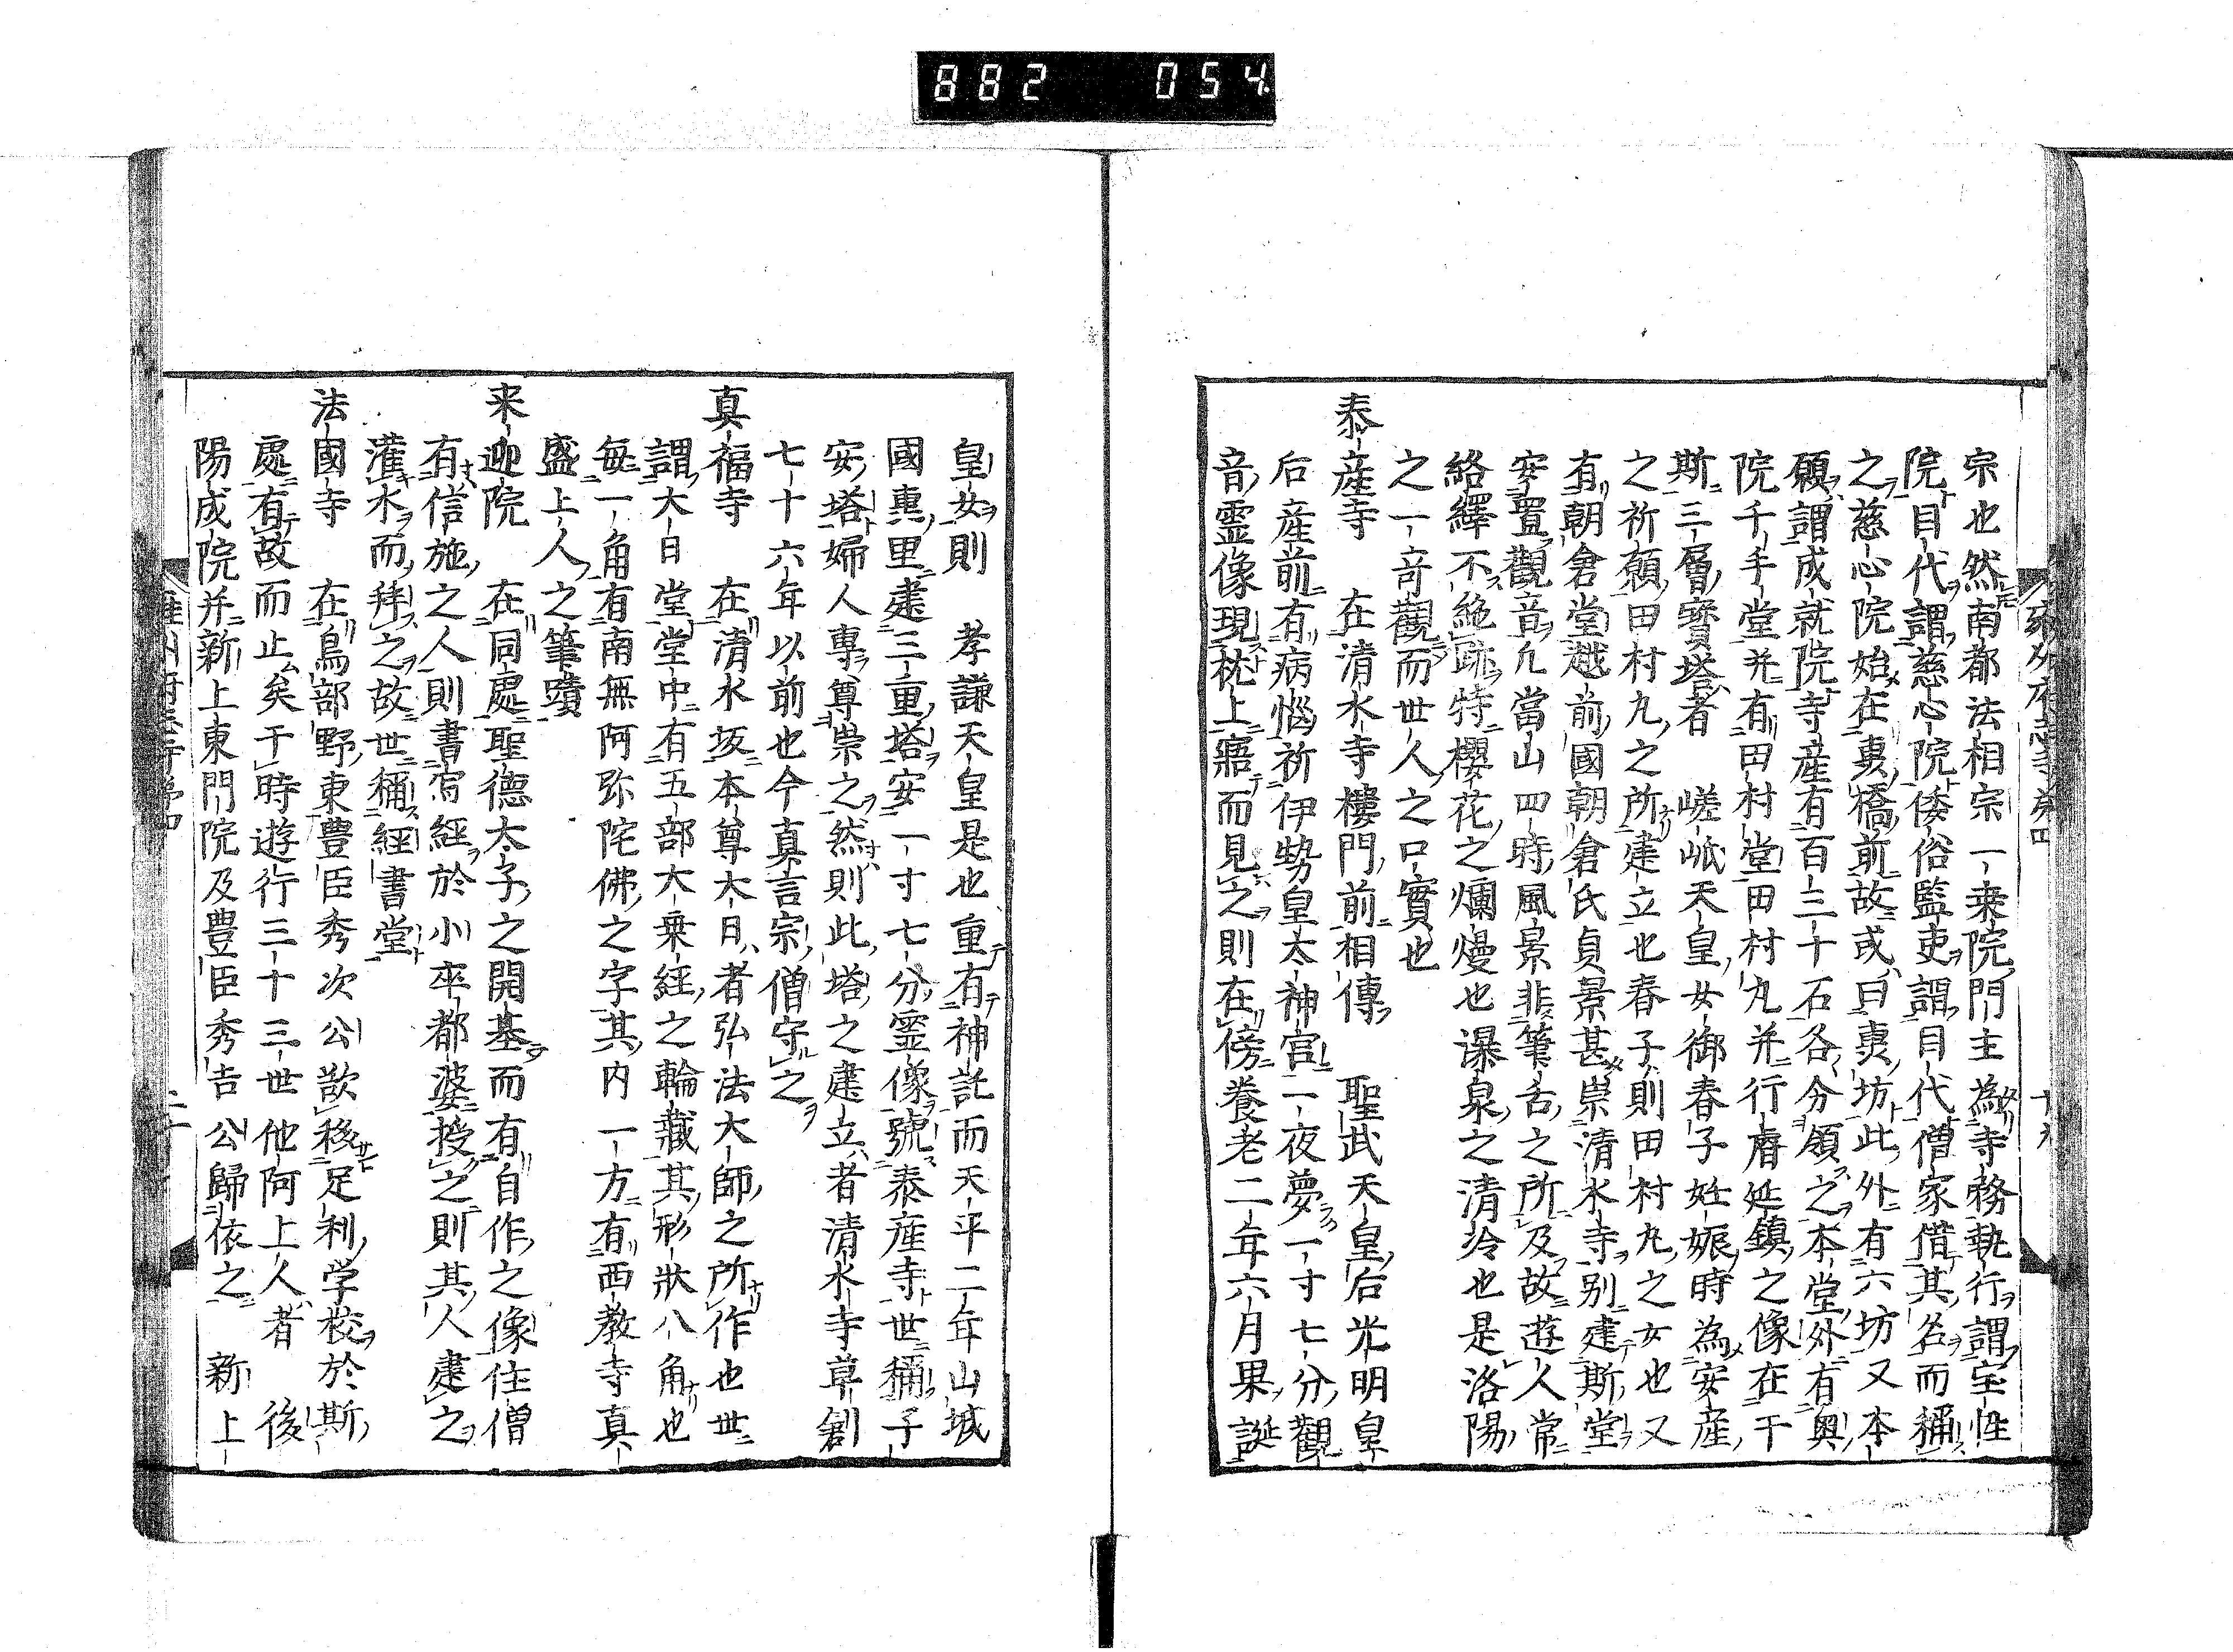 882 054
雍州府志寺第四
宗也然南都法相宗一乗院門主為寺務執行謂宝性
院目代謂慈心院倭俗監吏謂目代僧家借其名而稱
之慈心院始在夷橋前故或曰夷坊此外有六坊又本
願謂成就院寺産有百三十石各分領之本堂外有奥
院千手堂并有田村堂田村丸并行睿延鎮之像在干
斯三層寳塔者　嵯峨天皇女御春子姙娠時為安産
之祈願田村丸之所建立也春子則田村丸之女也又
有朝倉堂越前國朝倉氏貞景甚崇清水寺別建斯堂
安置觀音凢當山四時風景非筆舌之所及故遊人常
絡繹不絶跡特櫻花之爛熳也瀑泉之清冷也是洛陽
之一竒觀而世人之口實也
泰産寺　在清水寺樓門前相傳　聖武天皇后光明皇
后産前有病惱祈伊㔟皇太神宮一夜夢一寸七分觀
音霊像現枕上寤而見之則在傍養老二年六月果誕
皇女則　孝謙天皇是也重有神託而天平二年山城
國惠里建三重塔安一寸七分霊像號泰産寺世稱子
安塔婦人專尊崇之然則此塔之建立者清水寺草創
七十六年以前也今真言宗僧守之
真福寺　在清水坂本尊大日者弘法大師之所作也世
謂大日堂堂中有五部大乗經之輪藏其形狀八角也
毎一角有南無阿弥陀佛之字其内一方有西教寺真
盛上人之筆蹟
来迎院　在同處聖德太子之開基而有自作之像住僧
有信施之人則書寫經於小卒都婆授之則其人建之
灌水而拜之故世稱經書堂
法國寺　在鳥部野東豊臣秀次公欲移足利学校於斯
處有故而止矣于時遊行三十三世他阿上人者　後
陽成院并新上東門院及豊臣秀吉公歸依之　新上